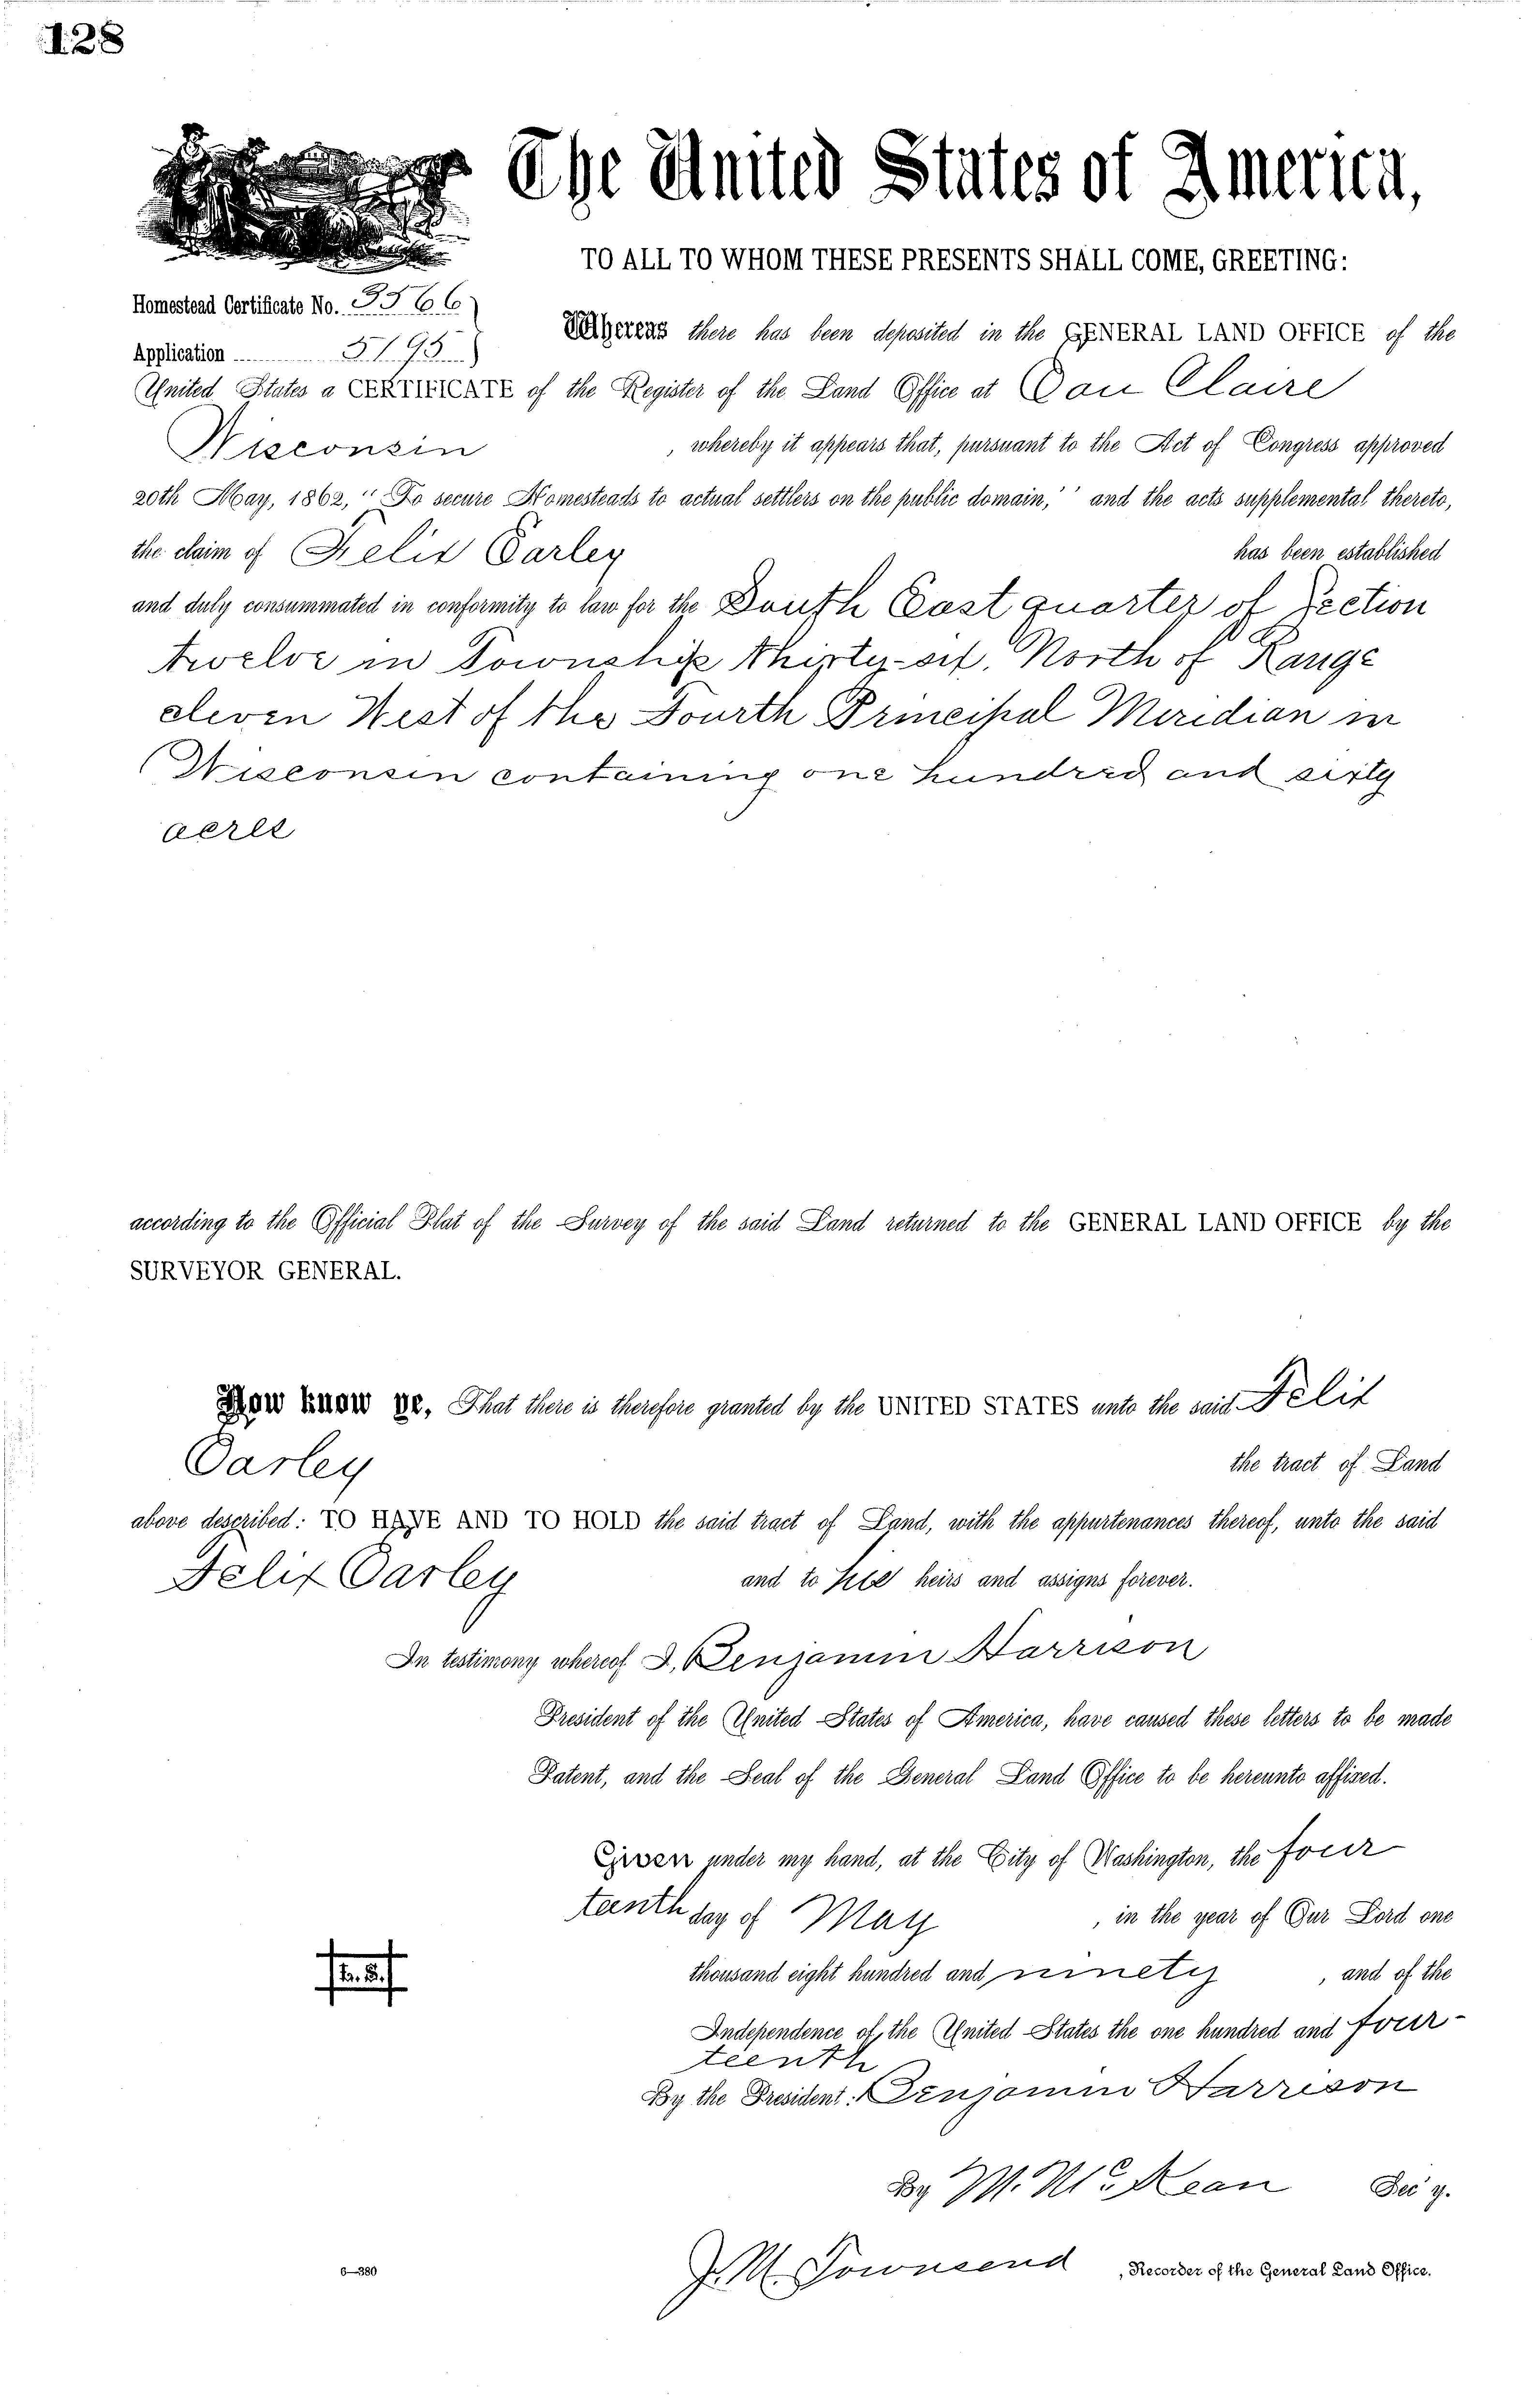 128
The United States of America,
TO ALL TO WHOM THESE PRESENTS SHALL COME, GREETING:
Homestead Certificate No. 3566
Application 5195
Whereas there has been deposited in the GENERAL LAND OFFICE of the
United States a CERTIFICATE of the Register of the Land Office at Eau Claire
Wisconsin , whereby it appears that, pursuant to the Act of Congress approved
20th May, 1862, "To secure Homesteads to actual settlers on the public domain," and the acts supplemental thereto,
the claim of Felix Carley has been established
and duly consummated in conformity to law for the South East quarter of Section
twelve in Township thirty-six, North of Range
eleven West of the Fourth Principal Meridian in
Wisconsin containing one hundred and sixty
acres
according to the Official Plat of the Survey of the said Land returned to the GENERAL LAND OFFICE by the
SURVEYOR GENERAL.
Now know ye, That there is therefore granted by the UNITED STATES unto the said Felix
Carley the tract of Land
above described: TO HAVE AND TO HOLD the said tract of Land, with the appurtenances thereof, unto the said
Felix Carley and to his heirs and assigns forever.
In testimony whereof I, Benjamin Harrison
President of the United States of America, have caused these letters to be made
Patent, and the Seal of the General Land Office to be hereunto affixed.
Given under my hand, at the City of Washington, the four
teenth day of May , in the year of Our Lord one
thousand eight hundred and ninety , and of the
L. S.
Independence of the United States the one hundred and four-
teenth
By the President: Benjamin Harrison
By M. McKean Sec'y.
J. M. Townsend , Recorder of the General Land Office.
6—380